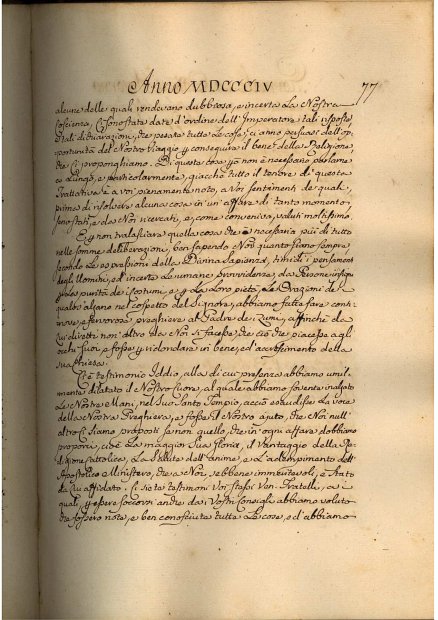 Anno MDCCCIV
77
alcune delle quali rendevano dubbiosa, e incerta La Nostra
coscienza, Ci sono state date d'ordine dell'Imperatore tali risposte,
e tali dichiarazioni, che pesate tutte Le cose, ci siamo persuasi dell'op-
portunità del Nostro Viaggio a conseguire il bene della Religione,
che Ci proponghiamo. Di queste cose non è necessario parlarne
a Lungo, e particolarmente, giacchè tutto il tenore di questa
Trattativa è a voi pienamente noto, i Voi sentimenti de' quali,
prima di risolvere alcuna cosa in un'affare di tanto momento,
sono stati, e da Noi ricercati, e, come conveniva, valuti moltissimo.
E non tralasciare quella cosa che è necessaria più di tutto
nelle somme deliberazioni, ben sapendo Noi quanto siano sempre
secondo Le espressioni della Divina Sapienza, timidi i pensamenti
degli Uomini, ed incerte Le umane provvidenze, da Persone insigni
per La purità de' Costumi, e La Loro pietà, Le Orazioni de'
quali salgono nel cospetto del Signore, abbiamo fatte fare conti-
nove, e fervorose preghiere al Padre de' Lumi, affinchè da
Lui diretti non altro da Noi si facesse, che ciò che piacesse agli
occhi Suoi, e fosse per ridondare in bene, ed accrescimento della
sua Chiesa.
Ci è testimonio Iddio, alla di cui presenza abbiamo umil-
mente dilatato il Nostro Cuore, al quale abbiamo sovente inalzato
Le Nostre Mani, nel Suo Santo Tempio, acciò esaudisse La voce
della Nostra Preghiera, e fosse il Nostro ajuto, che Noi null'
altro Ci siamo proposti se non quello, che in ogni affare dobbiamo
proporci, cioè La maggior Sua Gloria, il Vantaggio della Re-
ligione Cattolica, La Salute dell'Anime, e L'adempimento dell'
Apostolico Ministero, che a Noi, sebbene immeritevoli, è stato
da Lui affidato. Ci siete testimoni Voi stessi Ven. Fratelli, a i
quali, per essere soccorsi anche da i Vostri Consigli, abbiamo voluto
che fossero note, e ben conosciute tutte Le cose, ed abbiamo